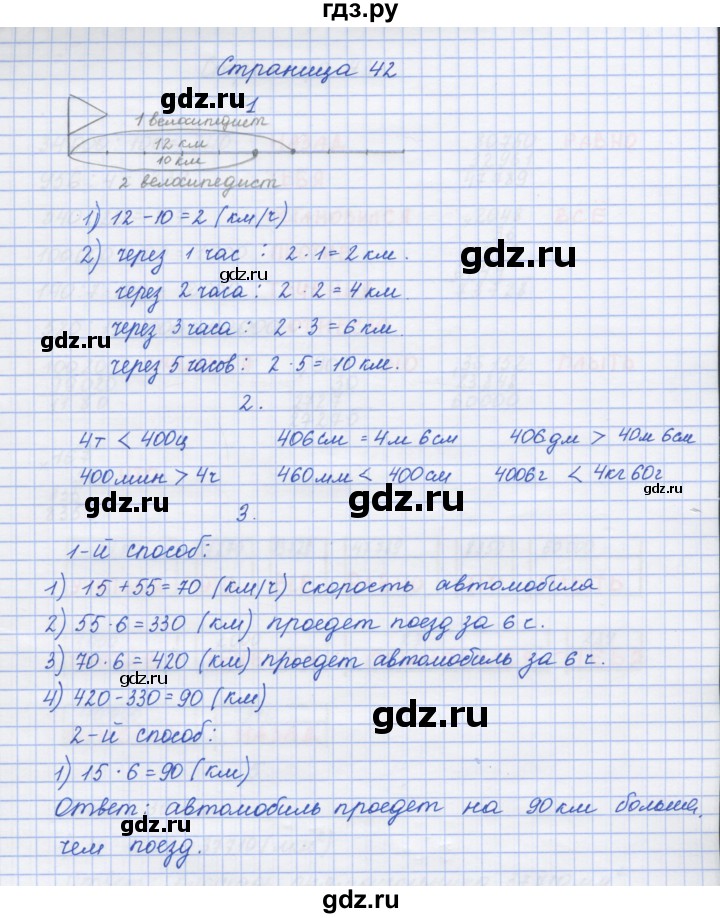 гдз.ру
Страница 42
gdz.ru
1
1 велосипедист
12 км
10 км
2 велосипедист
1) 12 - 10 = 2 (км/ч)
gdz.ru
2) через 1 час : 2 · 1 = 2 км.
gdz.ru
через 2 часа : 2 · 2 = 4 км.
gdz.ru
через 3 часа : 2 · 3 = 6 км.
gdz.ru
через 5 часов : 2 · 5 = 10 км.
2.
4т < 400ц 406см = 4м 6см 406дм > 40м 6см
400мин > 4ч 460мм < 400см 4006г < 4кг 60г
gdz.ru
gdz.ru
gdz.ru
3.
1-й способ:
1) 15 + 55 = 70 (км/ч) скорость автомобила
gdz.ru
2) 55 · 6 = 330 (км) проедет поезд за 6 с.
3) 70 · 6 = 420 (км) проедет автомобиль за 6 ч.
gdz.ru
4) 420 - 330 = 90 (км)
gdz.ru
2-й способ:
1) 15 · 6 = 90 (км)
Ответ: автомобиль проедет на 90 км больша,
gdz.ru
чем поезд.
gdz.ru